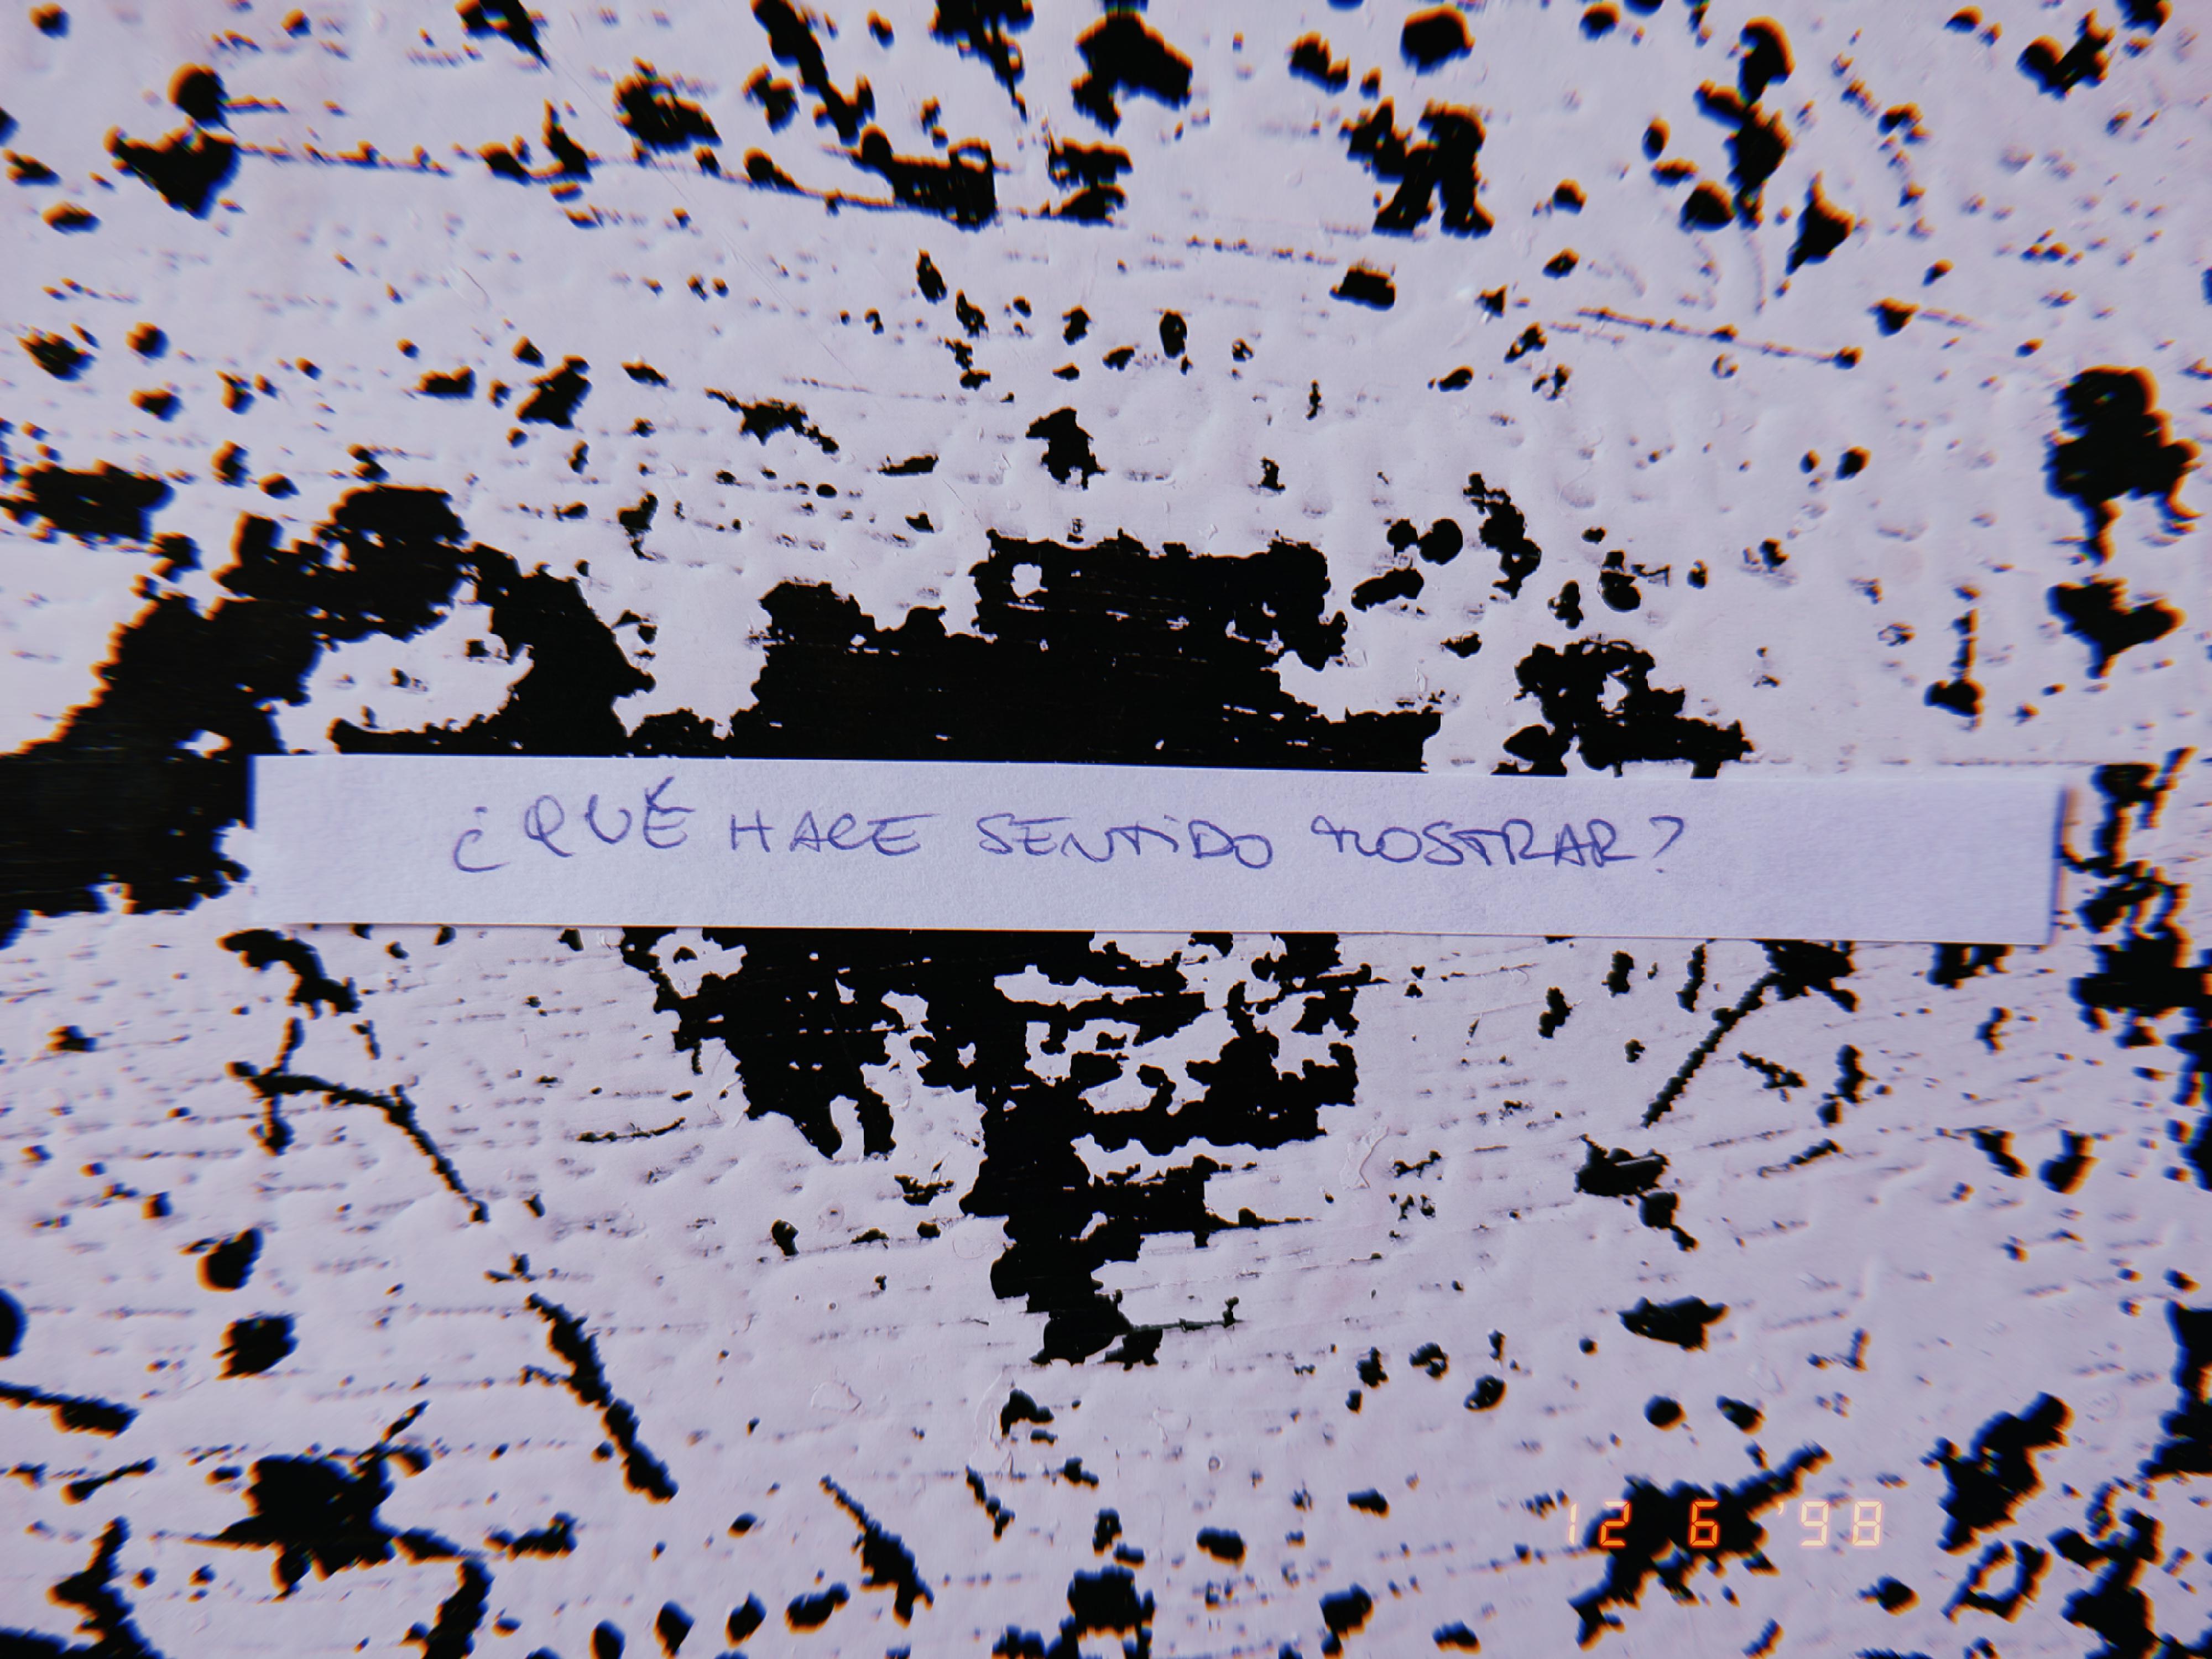 ¿QUÉ HACE SENTIDO MOSTRAR?
12 6 '98